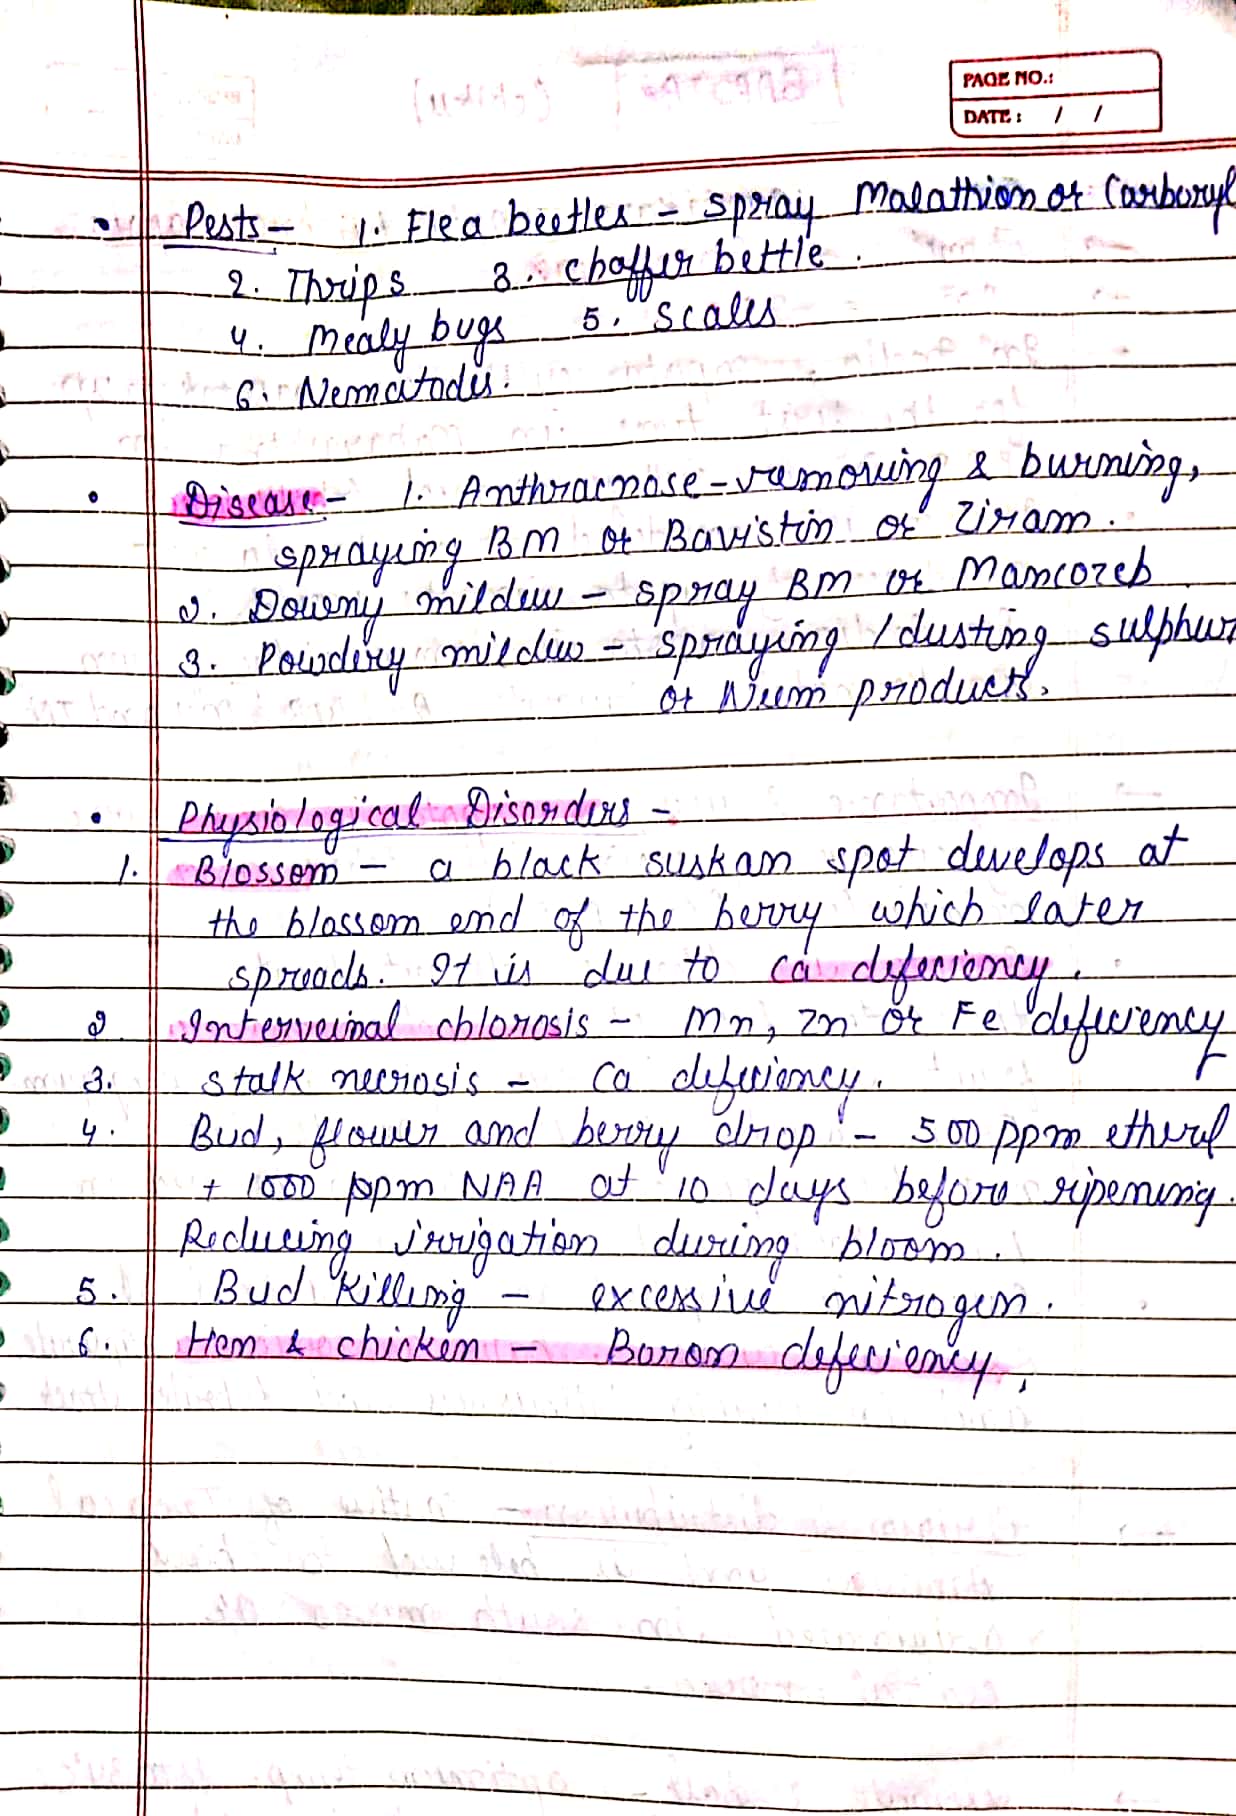 PAGE NO.:
DATE: / /
• Pests - 1. Flea beetles - spray Malathion or Carboryl
2. Thrips 3. chaffer bettle.
4. Mealy bugs 5. Scales
6. Nematodes.
• Disease - 1. Anthracnose - removing & burning,
spraying BM or Bavistin or Ziram.
2. Downy mildew - spray BM or Mancozeb
3. Powdery mildew - spraying / dusting sulphur
or Neem products.
• Physiological Disorders -
1. Blossom - a black suskan spot develops at
the blossom end of the berry which later
spreads. It is due to ca deficiency.
2. Interveinal chlorosis - Mn, Zn or Fe deficiency
3. Stalk necrosis - Ca deficiency.
4. Bud, flower and berry drop - 500 ppm etherel
+ 1000 ppm NAA at 10 days before ripening.
Reducing irrigation during bloom.
5. Bud Killing - excessive nitrogen.
6. Hen & chicken - Boron defeciency,